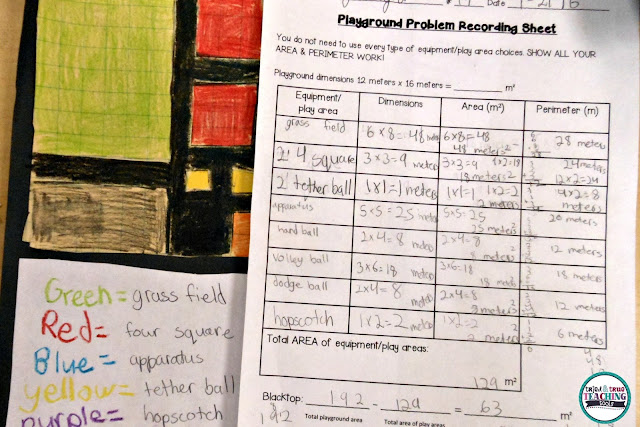 Date 1-21-16
Playground Problem Recording Sheet
You do not need to use every type of equipment/play area choices. SHOW ALL YOUR
AREA & PERIMETER WORK!
Playground dimensions 12 meters x 16 meters = __________ m²
Equipment/ play area Dimensions Area (m²) Perimeter (m)
grass field 6 x 8 = 48 6x8=48 28 meters
48 meters²
2 4 square 3 x 3 = 9 meters 3x3=9 9x2=18 24 meters
18 meters² 12x2=24
2 tether ball 1x1=1 meters 1x1=1 1x2=2 4x2=8
2 meters² meters
apparatus 5x5=25 5x5=25 20 meters
25 meters²
hand ball 2x4=8 2x4=8 12 meters
8
volley ball 3x6=18 3x6=18 18 meters
18
dodge ball 2x4=8 2x4=8 12 meters
meters
hopscotch 1x2=2 meters 1x2=2 6 meters
Total AREA of equipment/play areas:
129 m²
Blacktop: 192 - 129 = 63
192 Total playground area Total area of play areas
Green= grass field
Red= four square
Blue= apparatus
yellow= tether ball
purple= hopscotch
tried & true
TEACHING
TOOLS